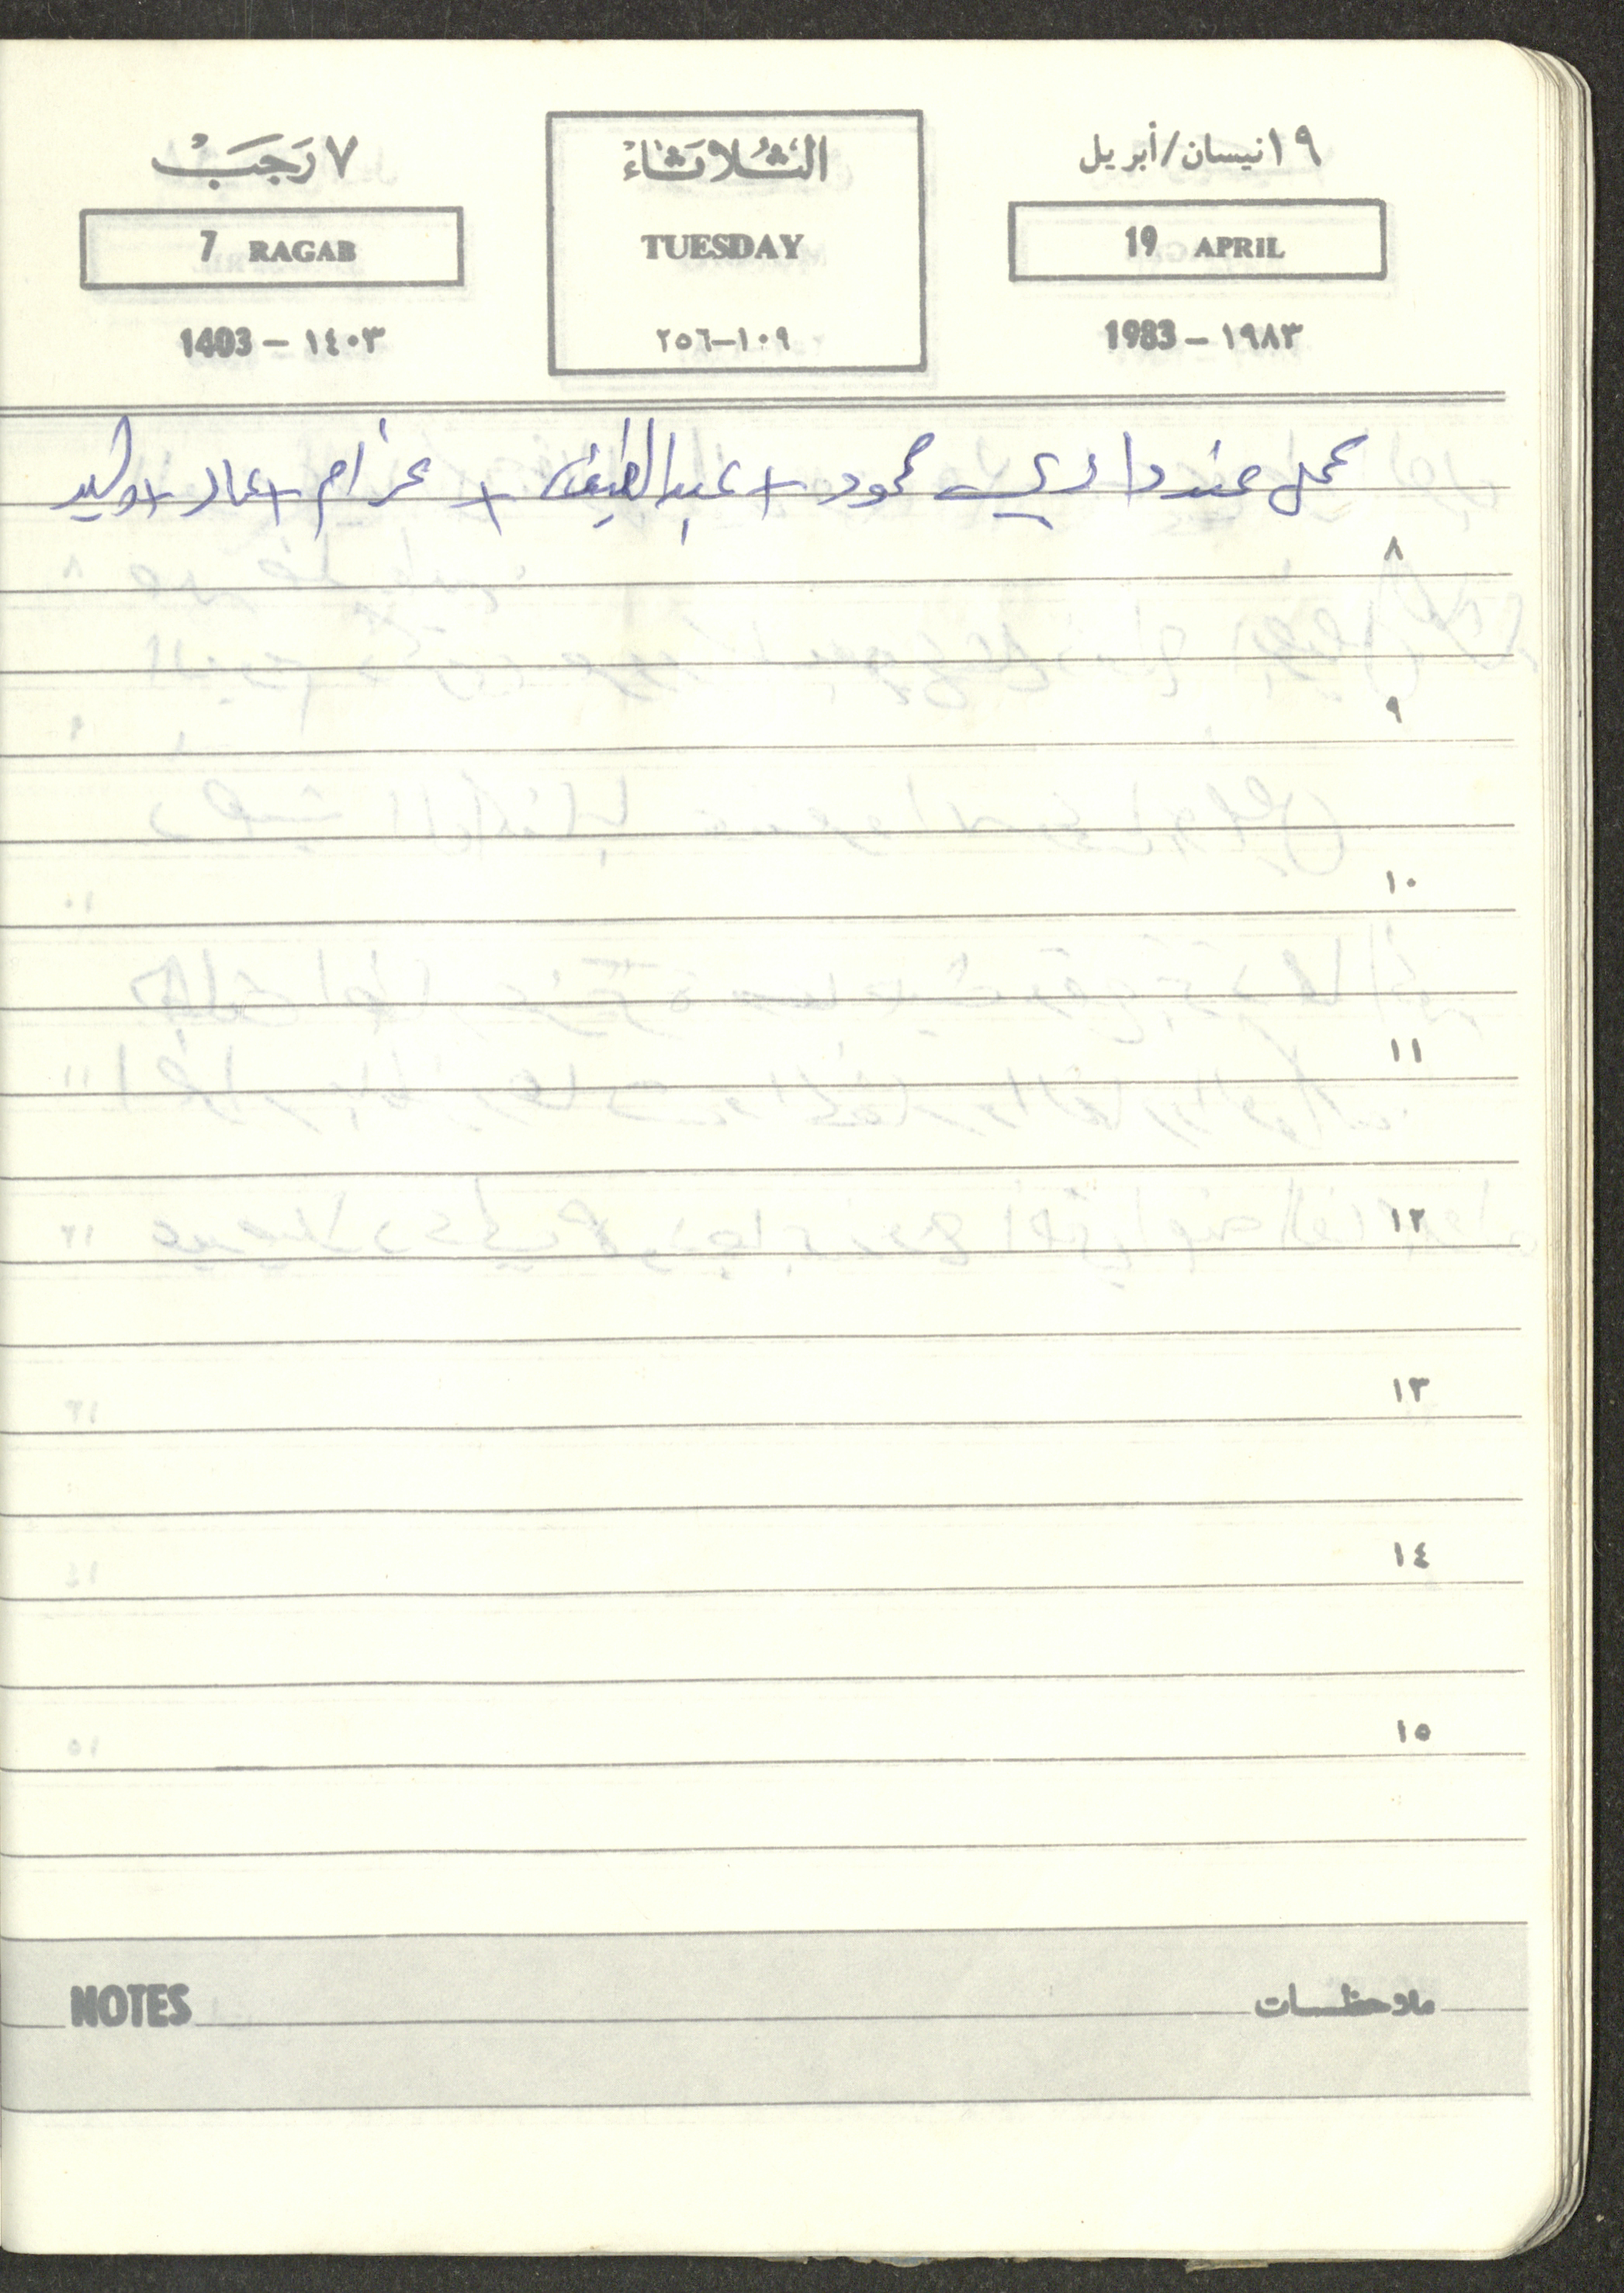 ١٩ نيسان/أبريل
19 APRIL
1983 - ١٩٨٣
الثلاثاء
TUESDAY
١٠٩-٢٥٦
٧ رجب
7 RAGAB
1403 - ١٤٠٣
عمل عند داري محمود + عبد اللطيف + عزام + عماد + وليد
٨
٩
١٠
١١
١٢
١٣
١٤
١٥
ملاحظات NOTES